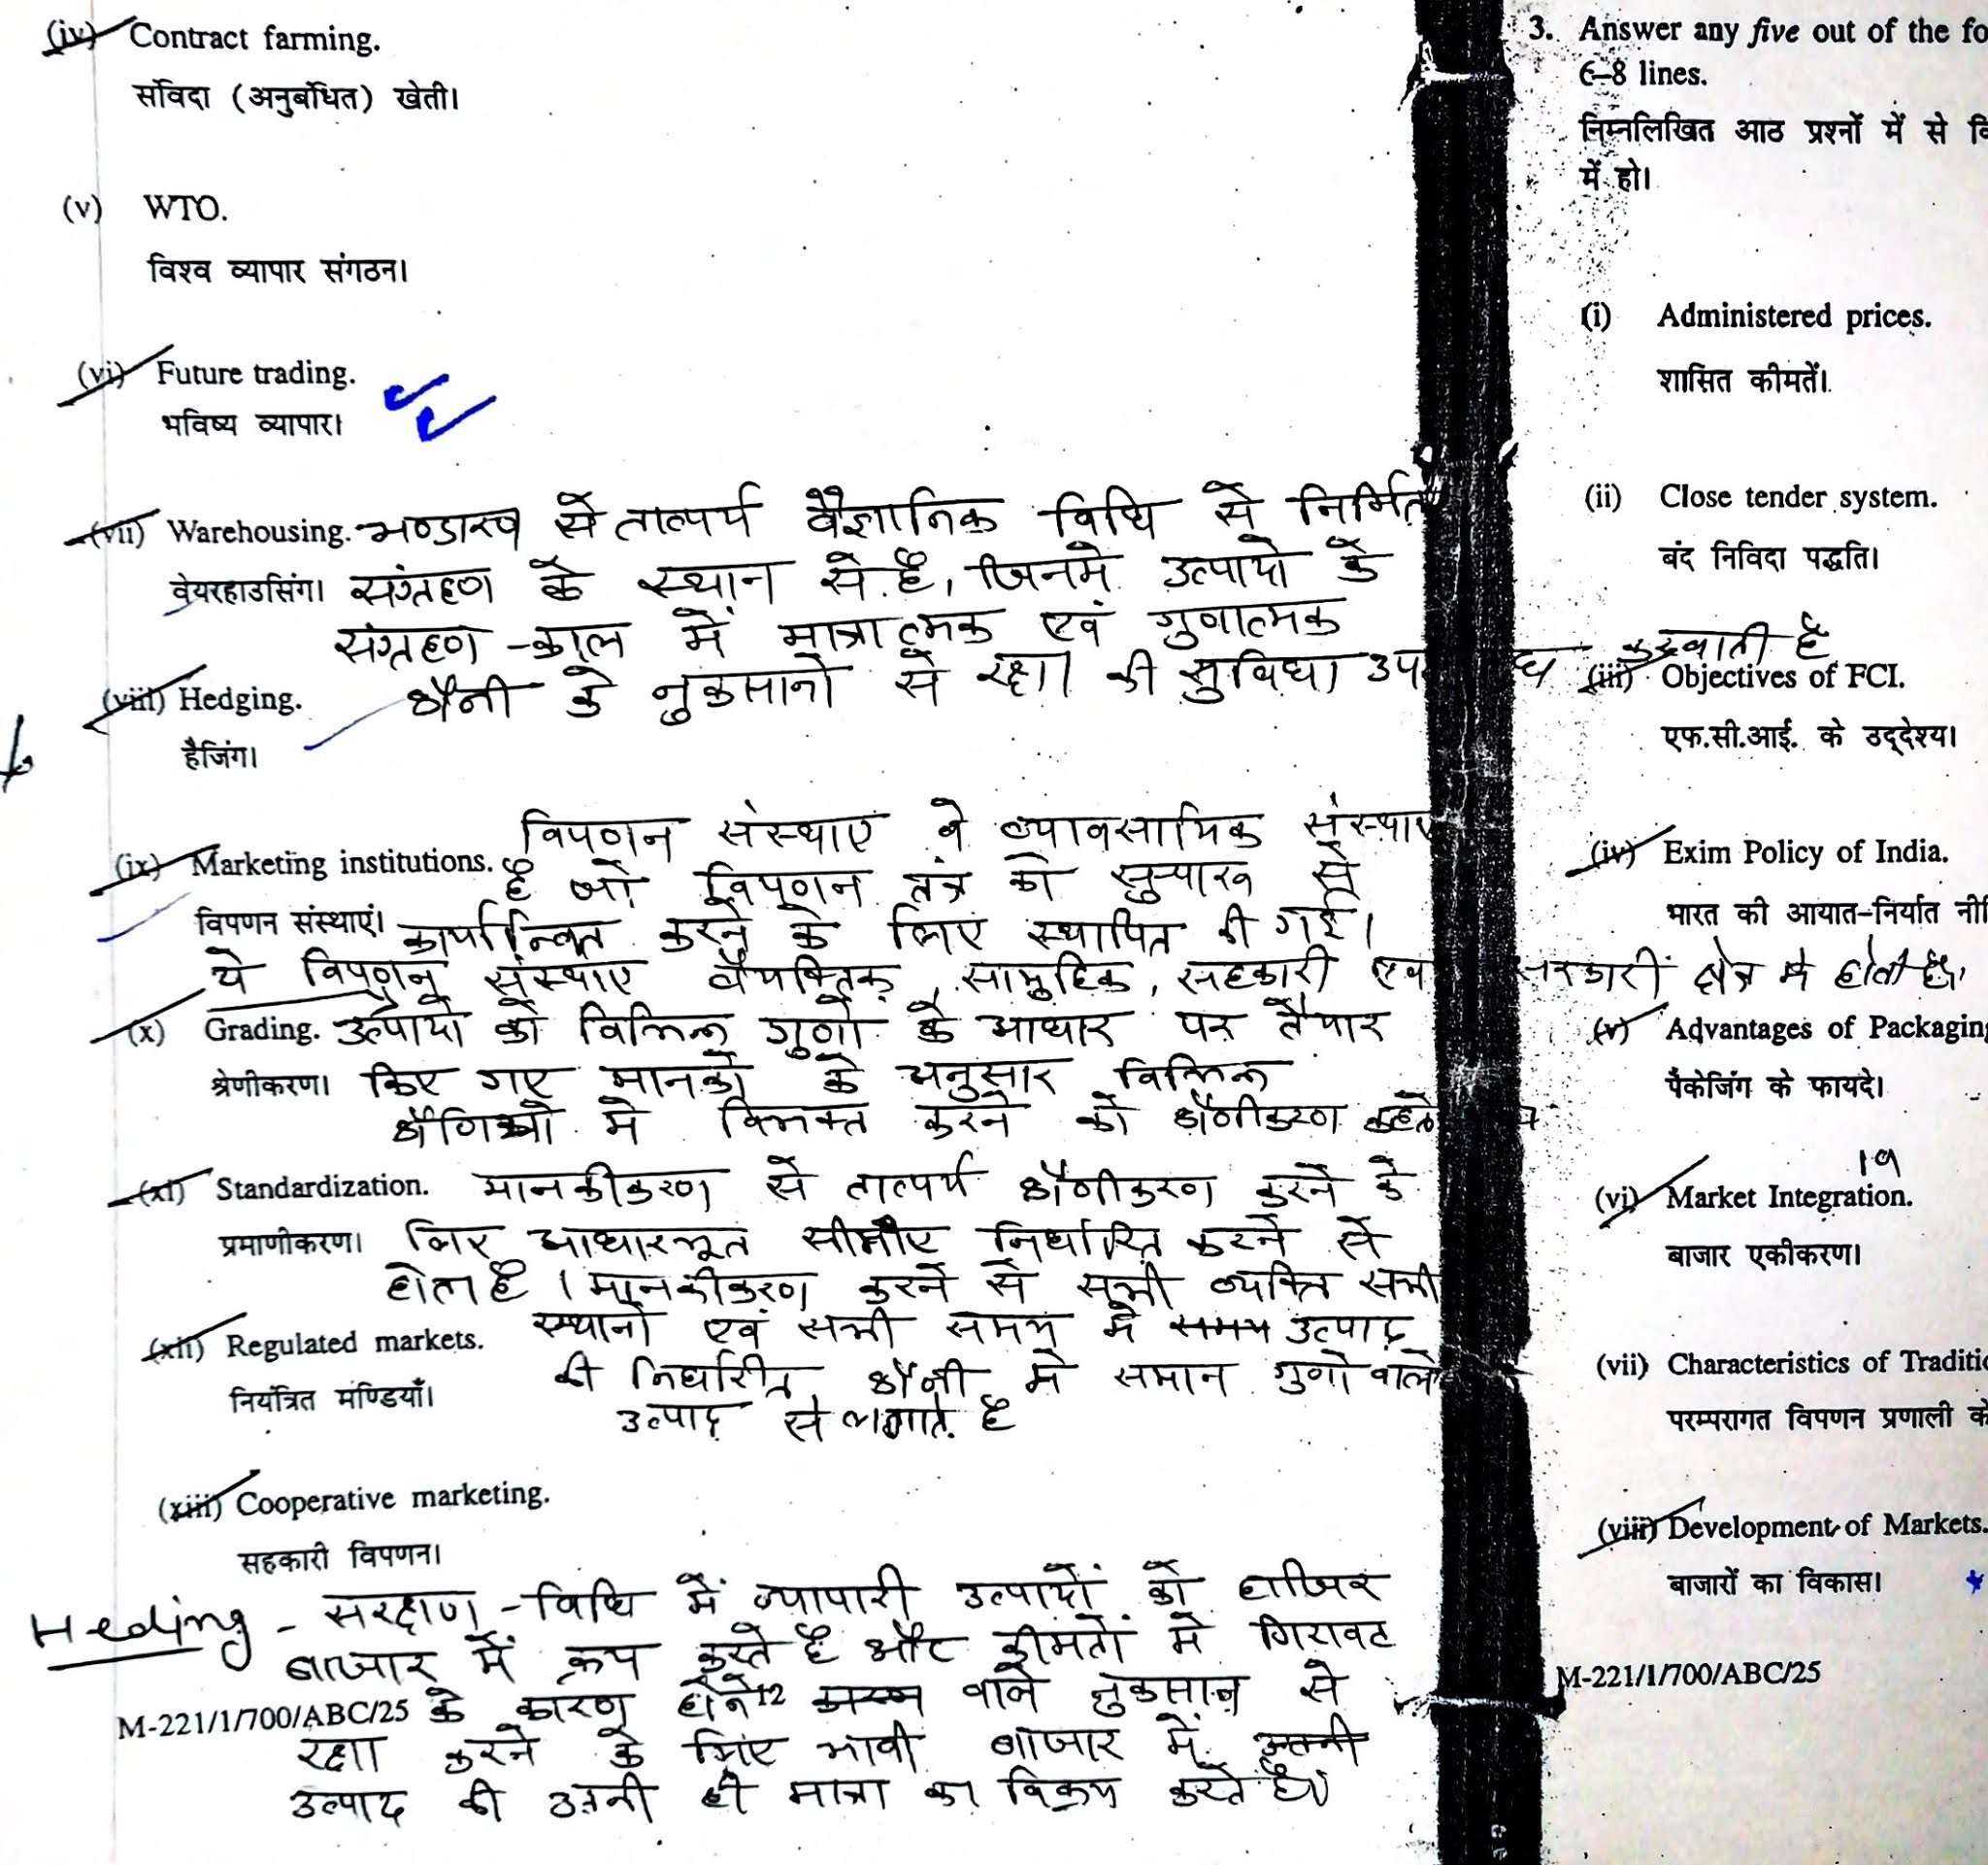 (iv) Contract farming.
संविदा (अनुबंधित) खेती।
(v) WTO.
विश्व व्यापार संगठन।
(vi) Future trading.
भविष्य व्यापार।
(vii) Warehousing. भण्डारव से तात्पर्य वैज्ञानिक विधि से निर्मित
वेयरहाउसिंग। संग्रहण के स्थान से है, जिनमे उत्पादो के
संग्रहण - काल में मात्रात्मक एवं गुणात्मक
श्रेनी के नुकसानो से रक्षा की सुविधा उप ध करवाती है
(viii) Hedging.
हैजिंग।
विपणन संस्थाए वे व्यावसायिक संस्थाए
(ix) Marketing institutions. है जो विपणन तंत्र को सुचारू से
विपणन संस्थाएं। कार्यान्वित करने के लिए स्थापित की गई।
ये विपणन संस्थाए वैयक्तिक, सामुहिक, सहकारी एव सरकारी क्षेत्र मे होती है,
(x) Grading. उत्पादो को विभिन्न गुणो के आधार पर तैयार
श्रेणीकरण। किए गए मानको के अनुसार विभिन्न
श्रेणिओ मे विभक्त करने को श्रेणीकरण कहते
(xi) Standardization. मानकीकरण से तात्पर्य श्रेणीकरण करने के
प्रमाणीकरण। लिए आधारभूत सीमाए निर्धारित करने से
होता है। मानकीकरण करने से सभी व्यक्ति सभी
स्थानो एवं सभी समय मे समय उत्पाद
(xii) Regulated markets.
की निर्धारित श्रेनी मे समान गुणो वाले
नियंत्रित मण्डियाँ।
उत्पाद से लगाते है
(xiii) Cooperative marketing.
सहकारी विपणन।
Heding - सरक्षण - विधि में व्यापारी उत्पादों को हाजिर
बाजार में क्रय करते है और कीमतों मे गिरावट
के कारण होने वाले नुकसान से
M-221/1/700/ABC/25 12
रक्षा करने के लिए भावी बाजार में
उत्पाद की उतनी ही मात्रा का विक्रय करते है।
3. Answer any five out of the fo
6–8 lines.
निम्नलिखित आठ प्रश्नों में से कि
में हो।
(i) Administered prices.
शासित कीमतें।
(ii) Close tender system.
बंद निविदा पद्धति।
(iii) Objectives of FCI.
एफ.सी.आई. के उद्देश्य।
(iv) Exim Policy of India.
भारत की आयात-निर्यात नीति
(v) Advantages of Packaging
पैकेजिंग के फायदे।
19
(vi) Market Integration.
बाजार एकीकरण।
(vii) Characteristics of Traditio
परम्परागत विपणन प्रणाली के
(viii) Development of Markets.
बाजारों का विकास।
M-221/1/700/ABC/25